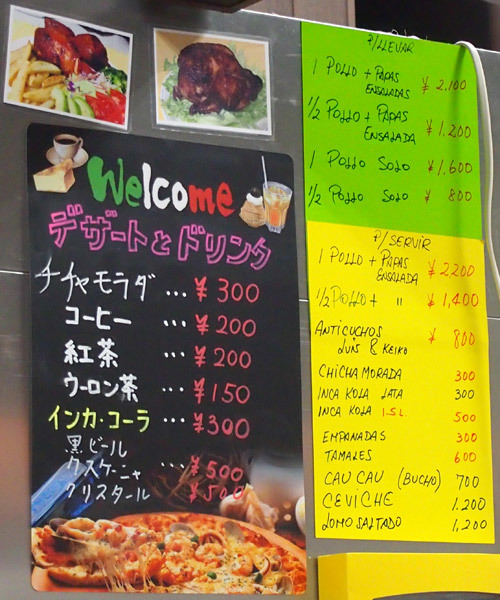 Welcome
デザートとドリンク
チチャモラダ ... ¥300
コーヒー ... ¥200
紅茶 ... ¥200
ウーロン茶 ... ¥150
インカ・コーラ ... ¥300
黒ビール
クスケーニャ ... ¥500
クリスタール ¥500
P/LLEVAR
1 POLLO + PAPAS
ENSALADAS ¥2,100
1/2 POLLO + PAPAS
ENSALADA ¥1.200
1 POLLO SOLO ¥1,600
1/2 POLLO SOLO ¥800
P/SERVIR
1 POLLO + PAPAS
ENSALADA ¥2200
1/2 POLLO + " ¥1,400
ANTICUCHOS ¥800
LUIS & KEIKO
CHICHA MORADA 300
INCA KOLA LATA 300
INCA KOLA 1.5L. 500
EMPANADAS 300
TAMALES 600
CAU CAU (BUCHO) 700
CEVICHE 1.200
LOMO SALTADO 1,200